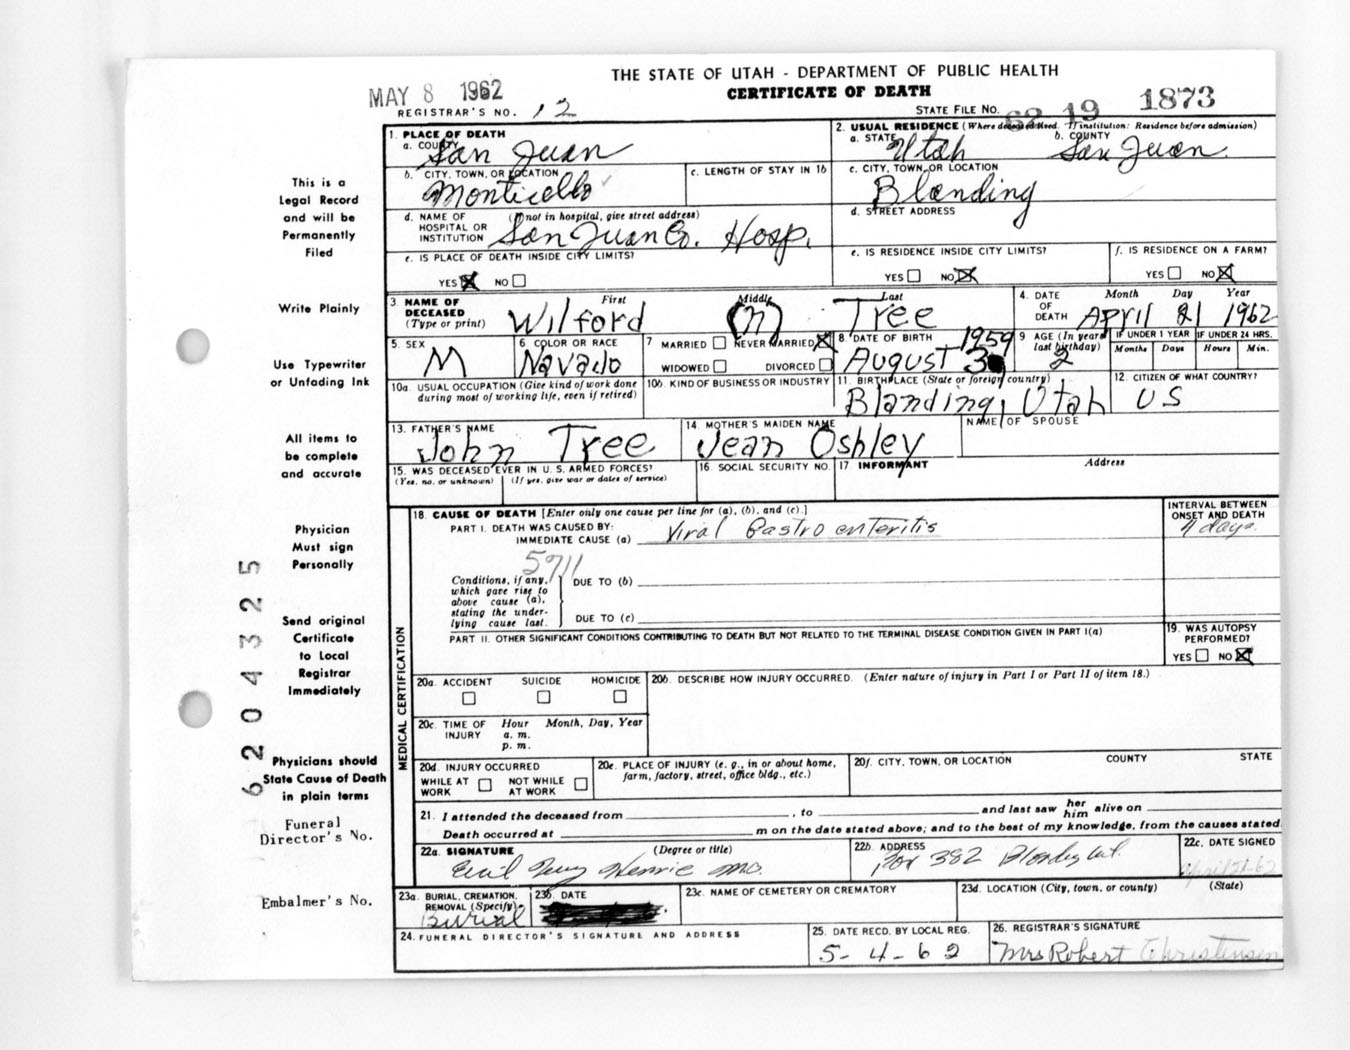 THE STATE OF UTAH - DEPARTMENT OF PUBLIC HEALTH
CERTIFICATE OF DEATH
MAY 8 1962
REGISTRAR'S NO. 12
STATE FILE NO. 62 19 1873
This is a
Legal Record
and will be
Permanently
Filed
Write Plainly
Use Typewriter
or Unfading Ink
All items to
be complete
and accurate
Physician
Must sign
Personally
Send original
Certificate
to Local
Registrar
Immediately
Physicians should
State Cause of Death
in plain terms
Funeral
Director's No.
Embalmer's No.
6204325
1. PLACE OF DEATH
a. COUNTY
San Juan
2. USUAL RESIDENCE (Where deceased lived. If institution: Residence before admission)
a. STATE Utah b. COUNTY San Juan
b. CITY, TOWN, OR LOCATION
Monticello
c. LENGTH OF STAY IN 1b
c. CITY, TOWN, OR LOCATION
Blanding
d. NAME OF (If not in hospital, give street address)
HOSPITAL OR
INSTITUTION San Juan Co. Hosp.
d. STREET ADDRESS
e. IS PLACE OF DEATH INSIDE CITY LIMITS?
YES NO
e. IS RESIDENCE INSIDE CITY LIMITS?
YES NO
f. IS RESIDENCE ON A FARM?
YES NO
3. NAME OF DECEASED (Type or print)
First Middle Last
Wilford (n) Tree
4. DATE OF DEATH
Month Day Year
April 21 1962
5. SEX
M
6 COLOR OR RACE
Navado
7 MARRIED NEVER MARRIED
WIDOWED DIVORCED
8. DATE OF BIRTH 1959
August 30
9 AGE (In years last birthday)
2
IF UNDER 1 YEAR
Months Days
IF UNDER 24 HRS.
Hours Min.
10a. USUAL OCCUPATION (Give kind of work done
during most of working life, even if retired)
10b. KIND OF BUSINESS OR INDUSTRY
11. BIRTHPLACE (State or foreign country)
Blanding, Utah
12. CITIZEN OF WHAT COUNTRY?
US
13. FATHER'S NAME
John Tree
14. MOTHER'S MAIDEN NAME
Jean Oshley
NAME OF SPOUSE
15. WAS DECEASED EVER IN U.S. ARMED FORCES?
(Yes, no, or unknown) (If yes, give war or dates of service)
16. SOCIAL SECURITY NO.
17 INFORMANT Address
MEDICAL CERTIFICATION
18. CAUSE OF DEATH [Enter only one cause per line for (a), (b), and (c).]
PART I. DEATH WAS CAUSED BY:
IMMEDIATE CAUSE (a) Viral Gastroenteritis
INTERVAL BETWEEN
ONSET AND DEATH
4 days
5711
Conditions, if any,
which gave rise to
above cause (a),
stating the under-
lying cause last.
DUE TO (b)
DUE TO (c)
PART II. OTHER SIGNIFICANT CONDITIONS CONTRIBUTING TO DEATH BUT NOT RELATED TO THE TERMINAL DISEASE CONDITION GIVEN IN PART I(a)
19. WAS AUTOPSY
PERFORMED?
YES NO
20a. ACCIDENT SUICIDE HOMICIDE
20b. DESCRIBE HOW INJURY OCCURRED. (Enter nature of injury in Part I or Part II of item 18.)
20c. TIME OF INJURY
Hour Month, Day, Year
a. m.
p. m.
20d. INJURY OCCURRED
WHILE AT WORK NOT WHILE AT WORK
20e. PLACE OF INJURY (e. g., in or about home,
farm, factory, street, office bldg., etc.)
20f. CITY, TOWN, OR LOCATION COUNTY STATE
21. I attended the deceased from , to and last saw her him alive on
Death occurred at m on the date stated above; and to the best of my knowledge, from the causes stated.
22a. SIGNATURE (Degree or title)
Henrie MD.
22b. ADDRESS
Box 382 Blanding Ut.
22c. DATE SIGNED
April 21-62
23a. BURIAL, CREMATION,
REMOVAL (Specify)
Burial
23b. DATE
23c. NAME OF CEMETERY OR CREMATORY
23d. LOCATION (City, town, or county) (State)
24. FUNERAL DIRECTOR'S SIGNATURE AND ADDRESS
25. DATE RECD. BY LOCAL REG.
5-4-62
26. REGISTRAR'S SIGNATURE
Mrs Robert Christensen